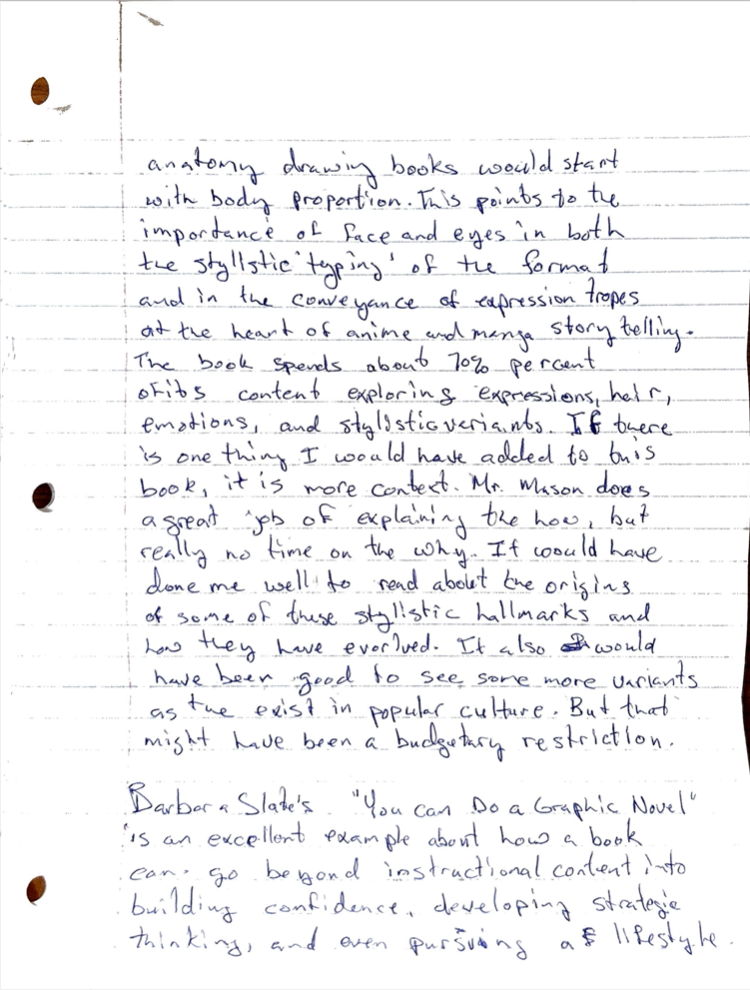 anatomy drawing books would start
with body proportion. This points to the
importance of face and eyes in both
the stylistic 'typing' of the format
and in the conveyance of expression tropes
at the heart of anime and manga story telling.
The book spends about 70% percent
of its content exploring expressions, hair,
emotions, and stylistic variants. If there
is one thing I would have added to this
book, it is more context. Mr. Mason does
a great job of explaining the how, but
really no time on the why. It would have
done me well to read about the origins
of some of these stylistic hallmarks and
how they have evorlved. It also would
have been good to see some more variants
as the exist in popular culture. But that
might have been a budgetary restriction.
Barbara Slate's "You can Do a Graphic Novel"
is an excellent example about how a book
can go beyond instructional content into
building confidence, developing strategic
thinking, and even pursuing a lifestyle.